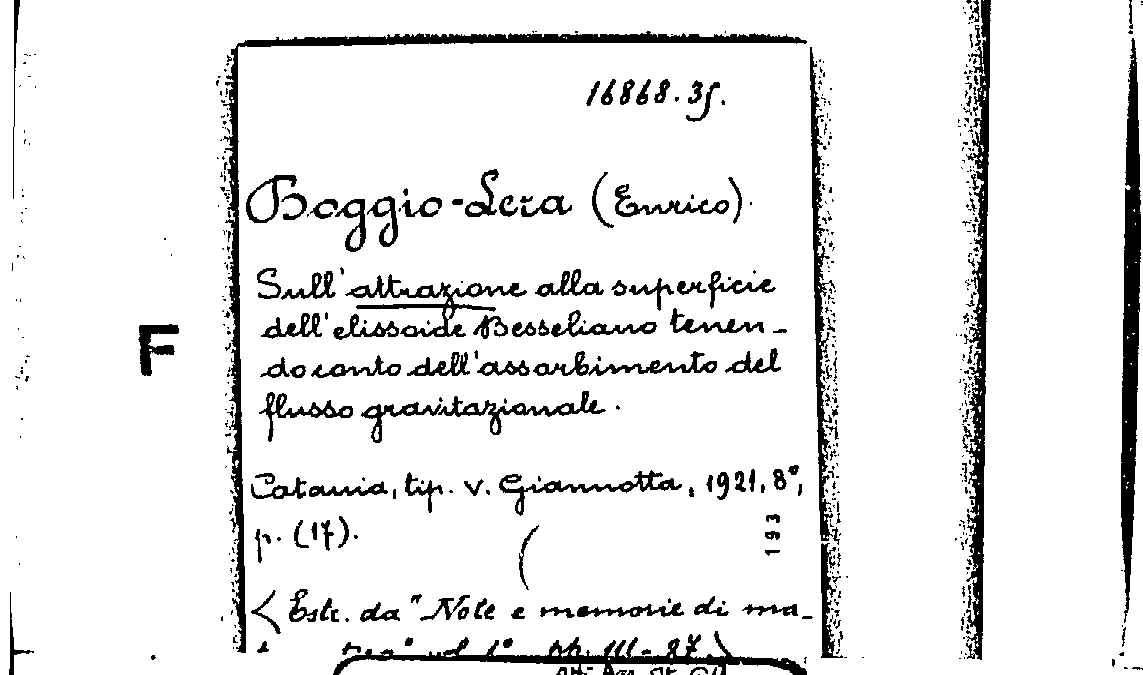 16868.35.
Boggio-Lera (Enrico).
Sull'attrazione alla superficie
dell'elissoide Besseliano tenen-
F
do conto dell'assorbimento del
flusso gravitazionale.
Catania, tip. V. Giannotta, 1921, 8°,
p. (17).
193
(Estr. da "Note e memorie di ma-
vol. 1°